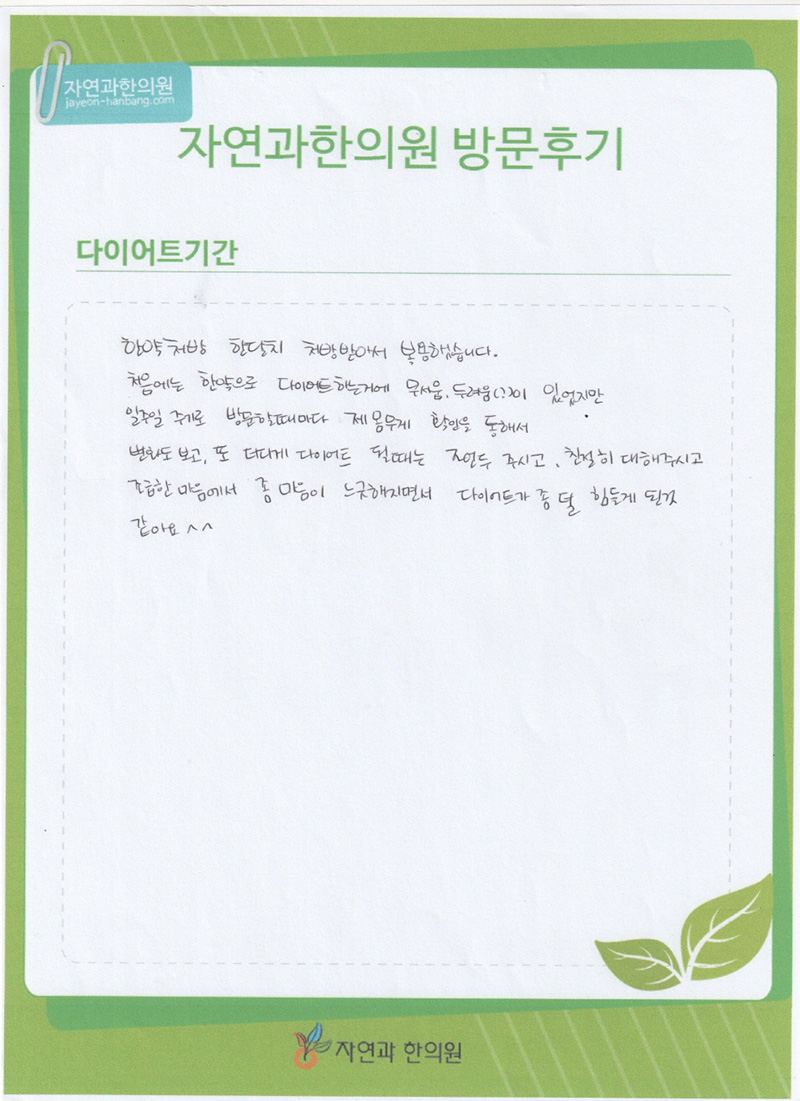 자연과한의원
jayeon-hanbang.com
자연과한의원 방문후기
다이어트기간
한약처방 한달치 처방받아서 복용했습니다.
처음에는 한약으로 다이어트하는거에 무서움, 두려움(?)이 있었지만
일주일 주기로 방문할때마다 제 몸무게 확인을 통해서
변화도 보고, 또 더디게 다이어트 될때는 조언두 주시고, 친절히 대해주시고
조급한 마음에서 좀 마음이 느긋해지면서 다이어트가 좀 덜 힘들게 된것
같아요 ^^
자연과 한의원